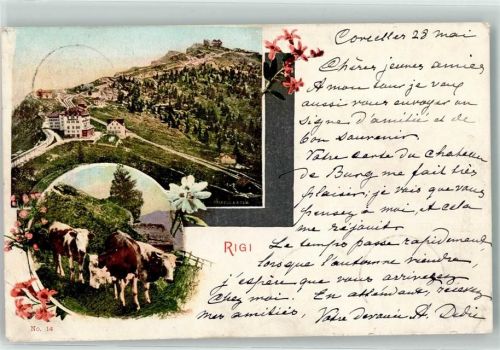 Corcelles 28 mai
Chères jeunes amies
A mon tour je vais
aussi vous envoyer un
signe d'amitié et de
bon souvenir
Votre carte du Chateau
de Burg me fait très
plaisir, je vois que vous
pensez à moi, et cela
me réjouit.
Le temps passe rapidement
lorsque l'automne viendra
j'espère que vous arriverez
chez moi. En attendant, recevez
mes amitiés, Votre dévouée A. Dedie
RIGI
No. 14